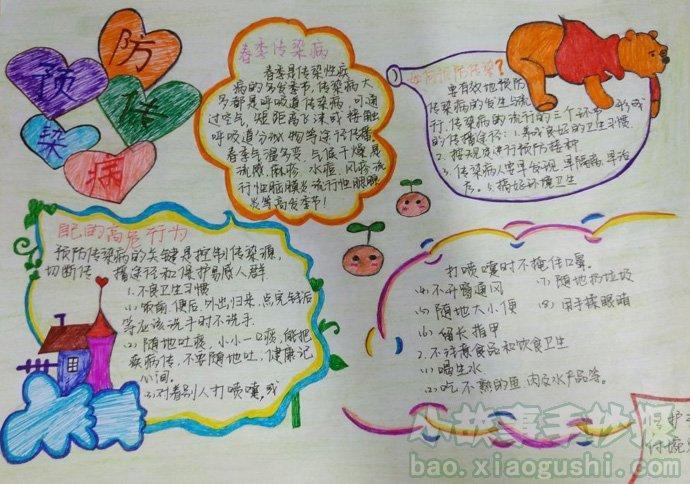 预防传染病
春季传染病
春季是传染性疾
病的多发季节,传染病大
多都是呼吸道传染病,可通
过空气,短距离飞沫或接触
呼吸道分泌物等途径传播
春季气温多变,气候干燥是
流感,麻疹,水痘,风疹,流
行性脑膜炎流行性腮腺
炎等高发季节!
如何预防传染?
要有效地预防
传染病的发生与流
行,传染病的流行的三个环节
的传播途径:1.养成良好的卫生习惯.
2.按规定进行预防接种
3.传染病人要早发现,早隔离,早治
疗.5.搞好环境卫生
的高危行为
预防传染病的关键是控制传染源,
切断传 播途径和保护易感人群
1.不良卫生习惯
(1)饭前,便后,外出归来,点完钱后
等应该洗手时不洗手.
(2)随地吐痰,小小一口痰,能把
疾病传,不要随地吐,健康记
心间.
(3)对着别人打喷嚏,或
打喷嚏时不掩住口鼻.
(4)不开窗通风
(5)随地大小便
(6)留长指甲
(7)随地扔垃圾
(8)用手揉眼睛
2.不注意食品和饮食卫生
(1)喝生水
(2)吃不熟的鱼,肉及水产品等。
小故事手抄报
bao.xiaogushi.com